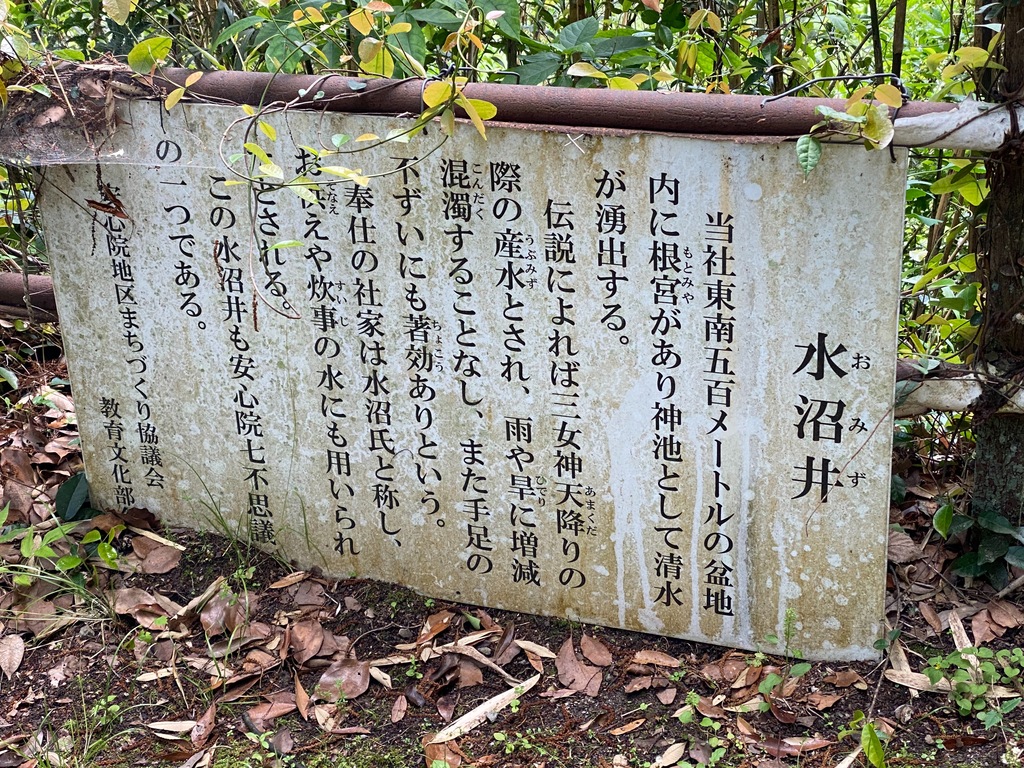 水沼井
おみず
当社東南五百メートルの盆地
内に根宮があり神池として清水
もとみや
が湧出する。
伝説によれば三女神天降りの
あまくだ
際の産水とされ、雨や旱に増減
うぶみず
ひでり
混濁することなし、また手足の
こんだく
不ずいにも著効ありという。
ちょこう
奉仕の社家は水沼氏と称し、
お供えや炊事の水にも用いられ
すいじ
とされる。
この水沼井も安心院七不思議
の一つである。
心院地区まちづくり協議会
教育文化部